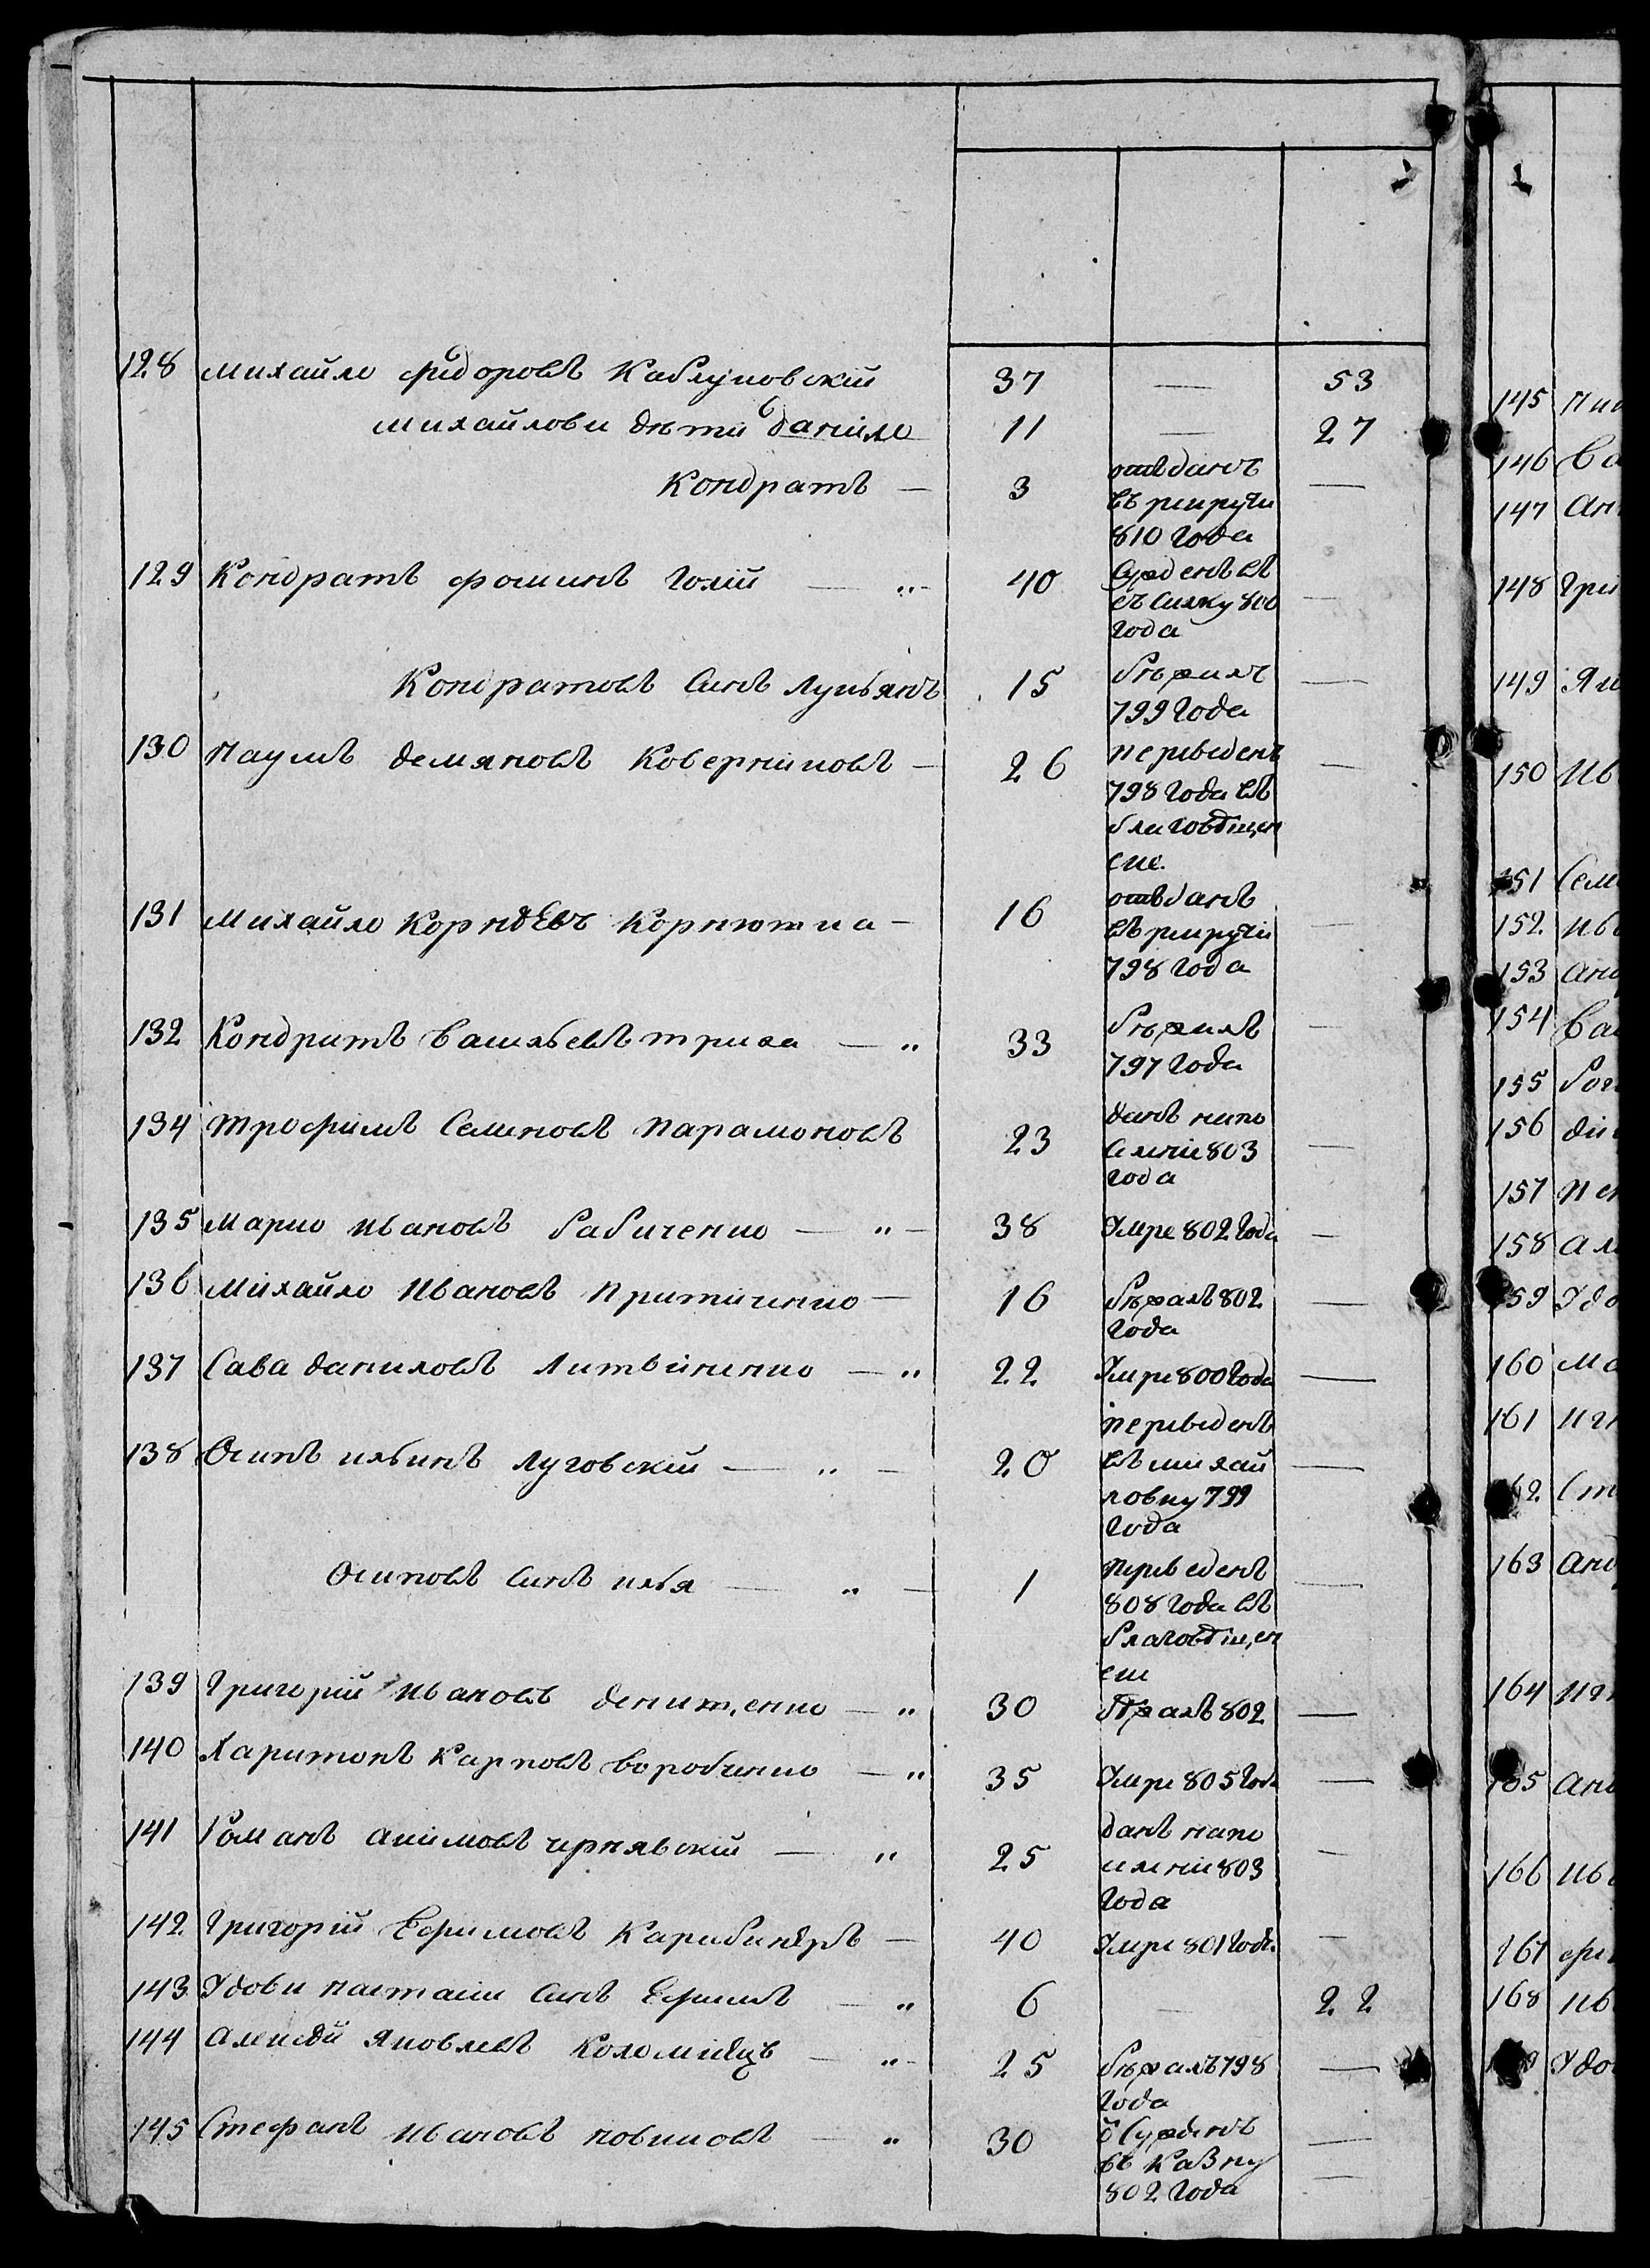 128 Михайло Фіодоровъ Каблуновскій 37 — 53
Михайлови дѣти Даніило 11 — 27
Кондратъ — 3 отъданъ —
въ рикруты
810 года
129 Кондратъ Фоминъ Голій — „ 40 Сужденъ въ —
съсилку 800
года
Кондратовъ Синъ Лукьянъ 15 бѣжилъ —
799 года
130 Наумъ Демяновъ Коверніновъ — 26 Переведенъ —
798 года въ
благовѣщен
ское
131 Михайло Корнѣевъ Корнютка — 16 отъданъ —
въ рикруты
798 года
132 Кондратъ Васильевъ — „ 33 бѣжилъ —
797 года
134 Трофимъ Семиновъ Парамоновъ 23 данъ напо —
силніи 803
года
135 Марко Ивановъ бабиченко — „ — 38 Умре 802 года —
136 Михайло Ивановъ Притиченко — 16 бѣжалъ 802 —
года
137 Сава Даниловъ Литвіненко — „ 22 Умре 800 года —
138 Осипъ ильинъ Луговскій — „ — 20 Переведенъ —
въ михай
ловку 799
года
Осиповъ Синъ илья — „ — 1 Переведенъ —
808 года въ
благовѣщен
139 Григорій Ивановъ Денищенко — „ 30 бѣжалъ 802 —
140 Харитонъ Карповъ воробченко — „ 35 Умре 805 года —
141 Романъ акимовъ чернявскій — „ 25 данъ напо —
силніи 803
года
142 Григорій Ефимовъ Карабинѣръ — 40 Умре 801 года —
143 Удови настасіи Синъ Ефимъ — „ 6 — 22
144 алексѣй Яковлевъ Коломіѣцъ — „ 25 бѣжалъ 798 —
года
145 Стефанъ Ивановъ новиковъ — „ 30 Осужденъ —
въ Казну —
802 года
145
146
147
148
149
150
151
152
153
154
155
156
157
158
159
160
161
163
164
166
167
168